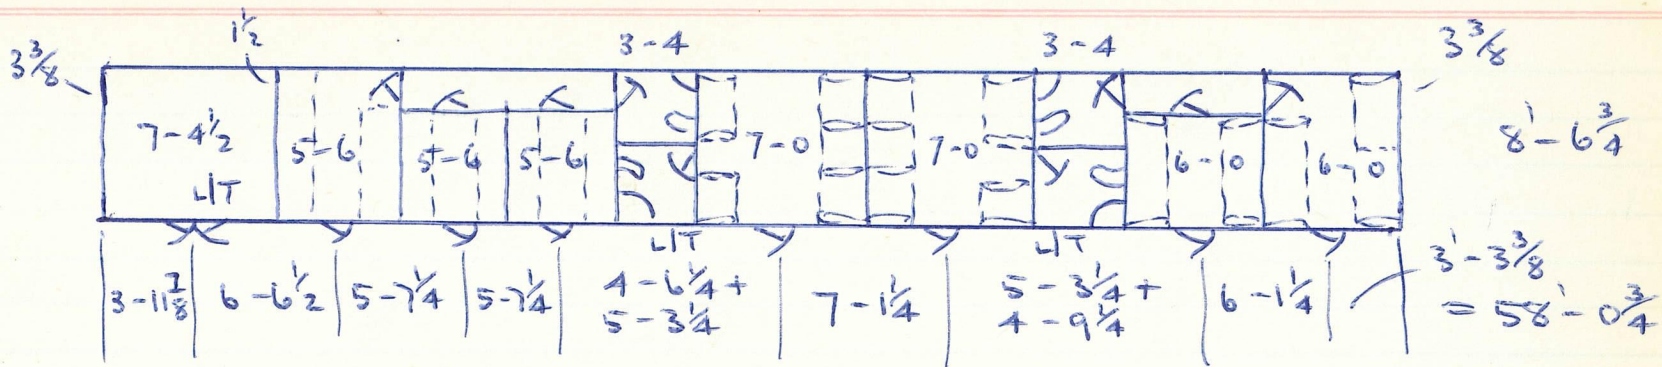 1½
3-4
3-4
3⅜
3⅜
7-4½
5-6
5-6
5-6
7-0
7-0
6-0
6-0
8'-6¾
L/T
L/T
L/T
3-11⅞
6-6½
5-7¼
5-7¼
4-6¼+
5-3¼
7-1¼
5-3¼+
4-9¼
6-1¼
3'-3⅜
=58'-0¾